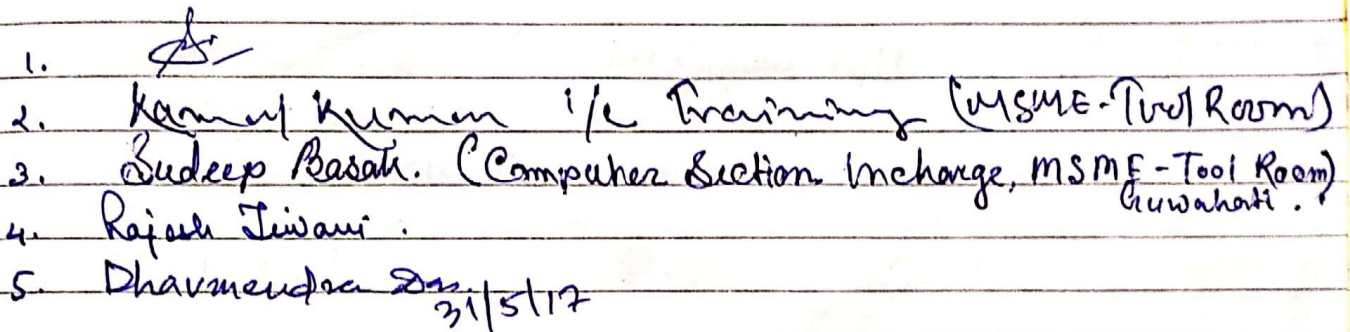 1.
2. Kamal Kumar i/c Training (MSME-Tool Room)
3. Sudeep Basak. (Computer Section Incharge, MSME-Tool Room)
Guwahati.
4. Rajesh Tiwari.
5. Dharmendra Das.
31/5/17